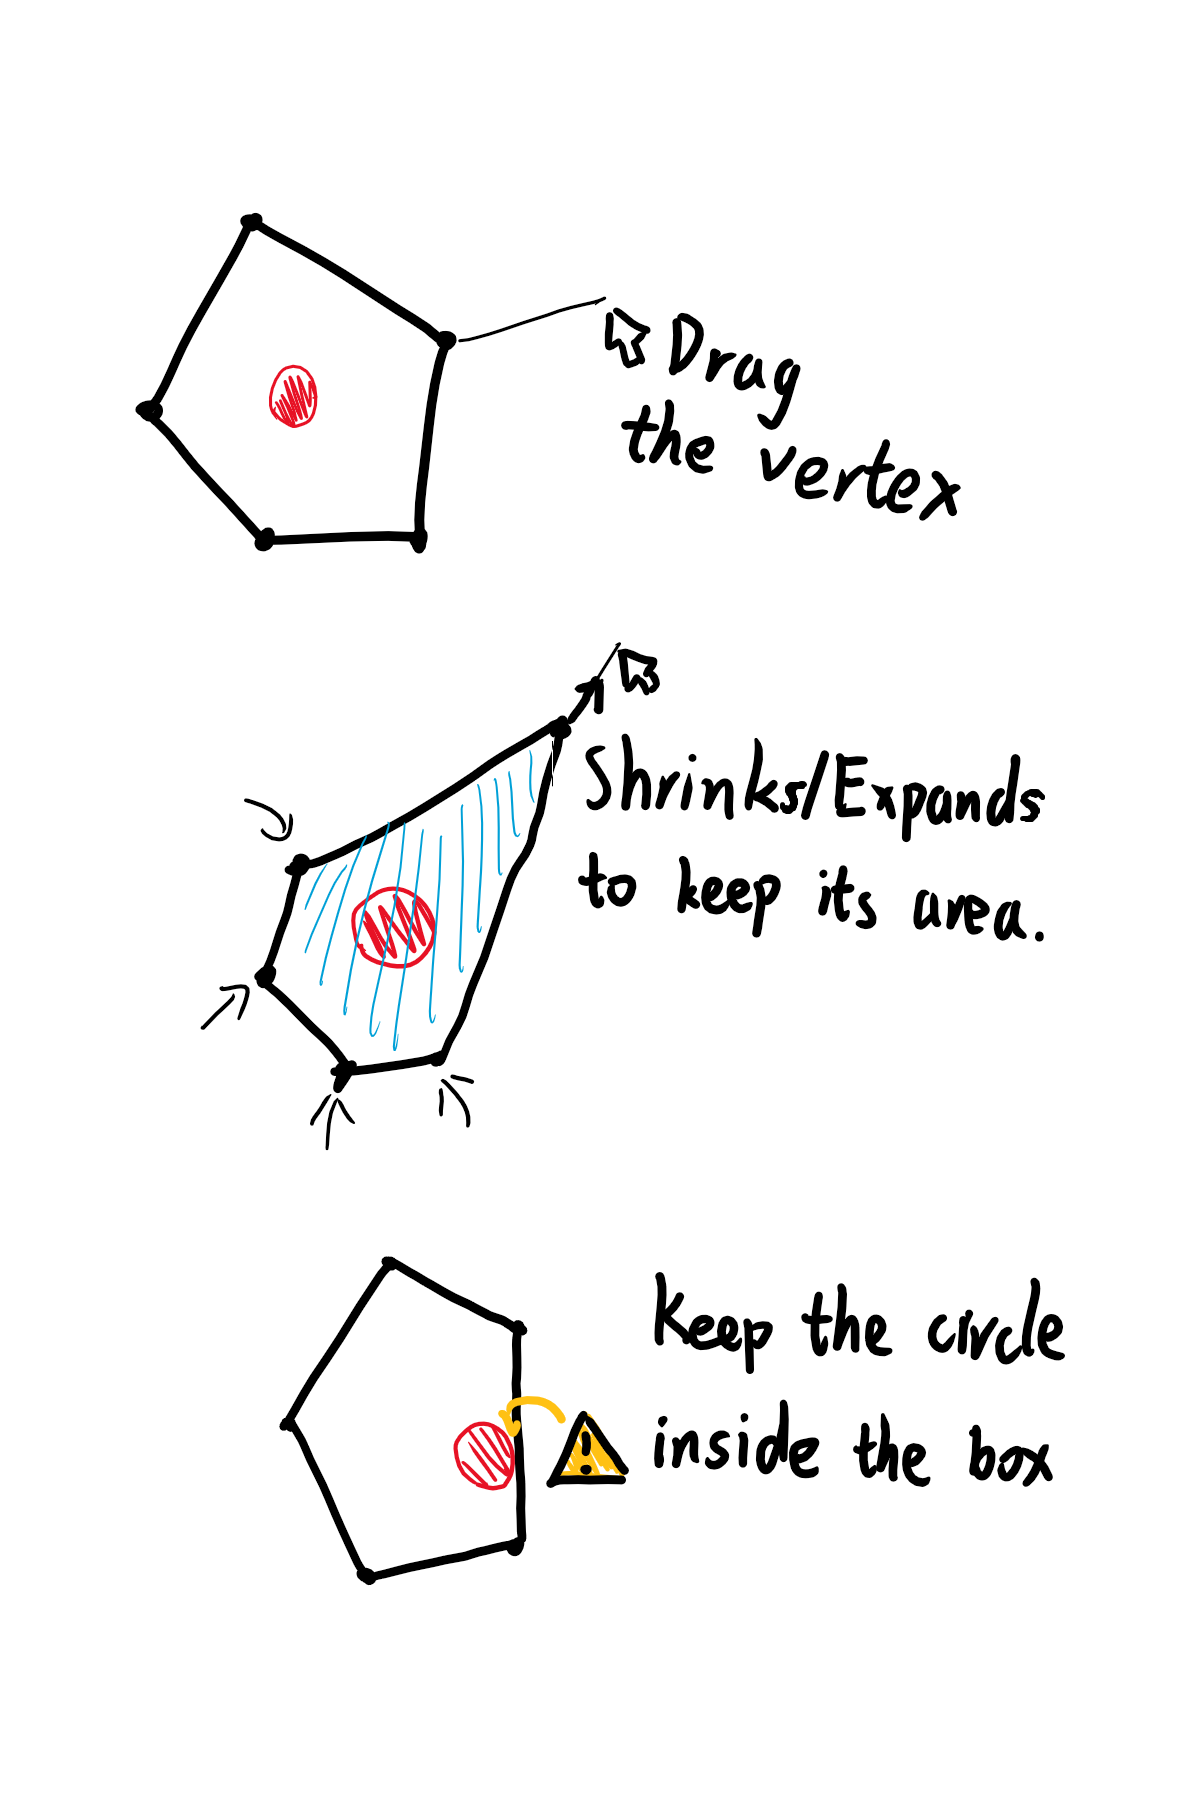 Drag
the vertex
Shrinks/Expands
to keep its area.
Keep the circle
!
inside the box